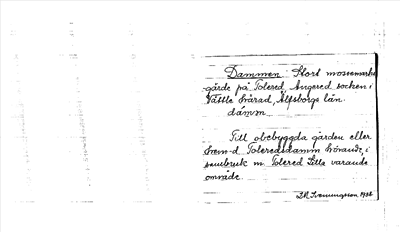 Dammen. Stort mossmarks-
gärde på Tolered, Angered socken i
Vättle härad, Älfsborgs län.
dámm
Till obebyggda gården eller
hem-d Toleredsdamm hörande, i
sambruk m. Tolered Lilla varande
område.
Svenungsson 1932